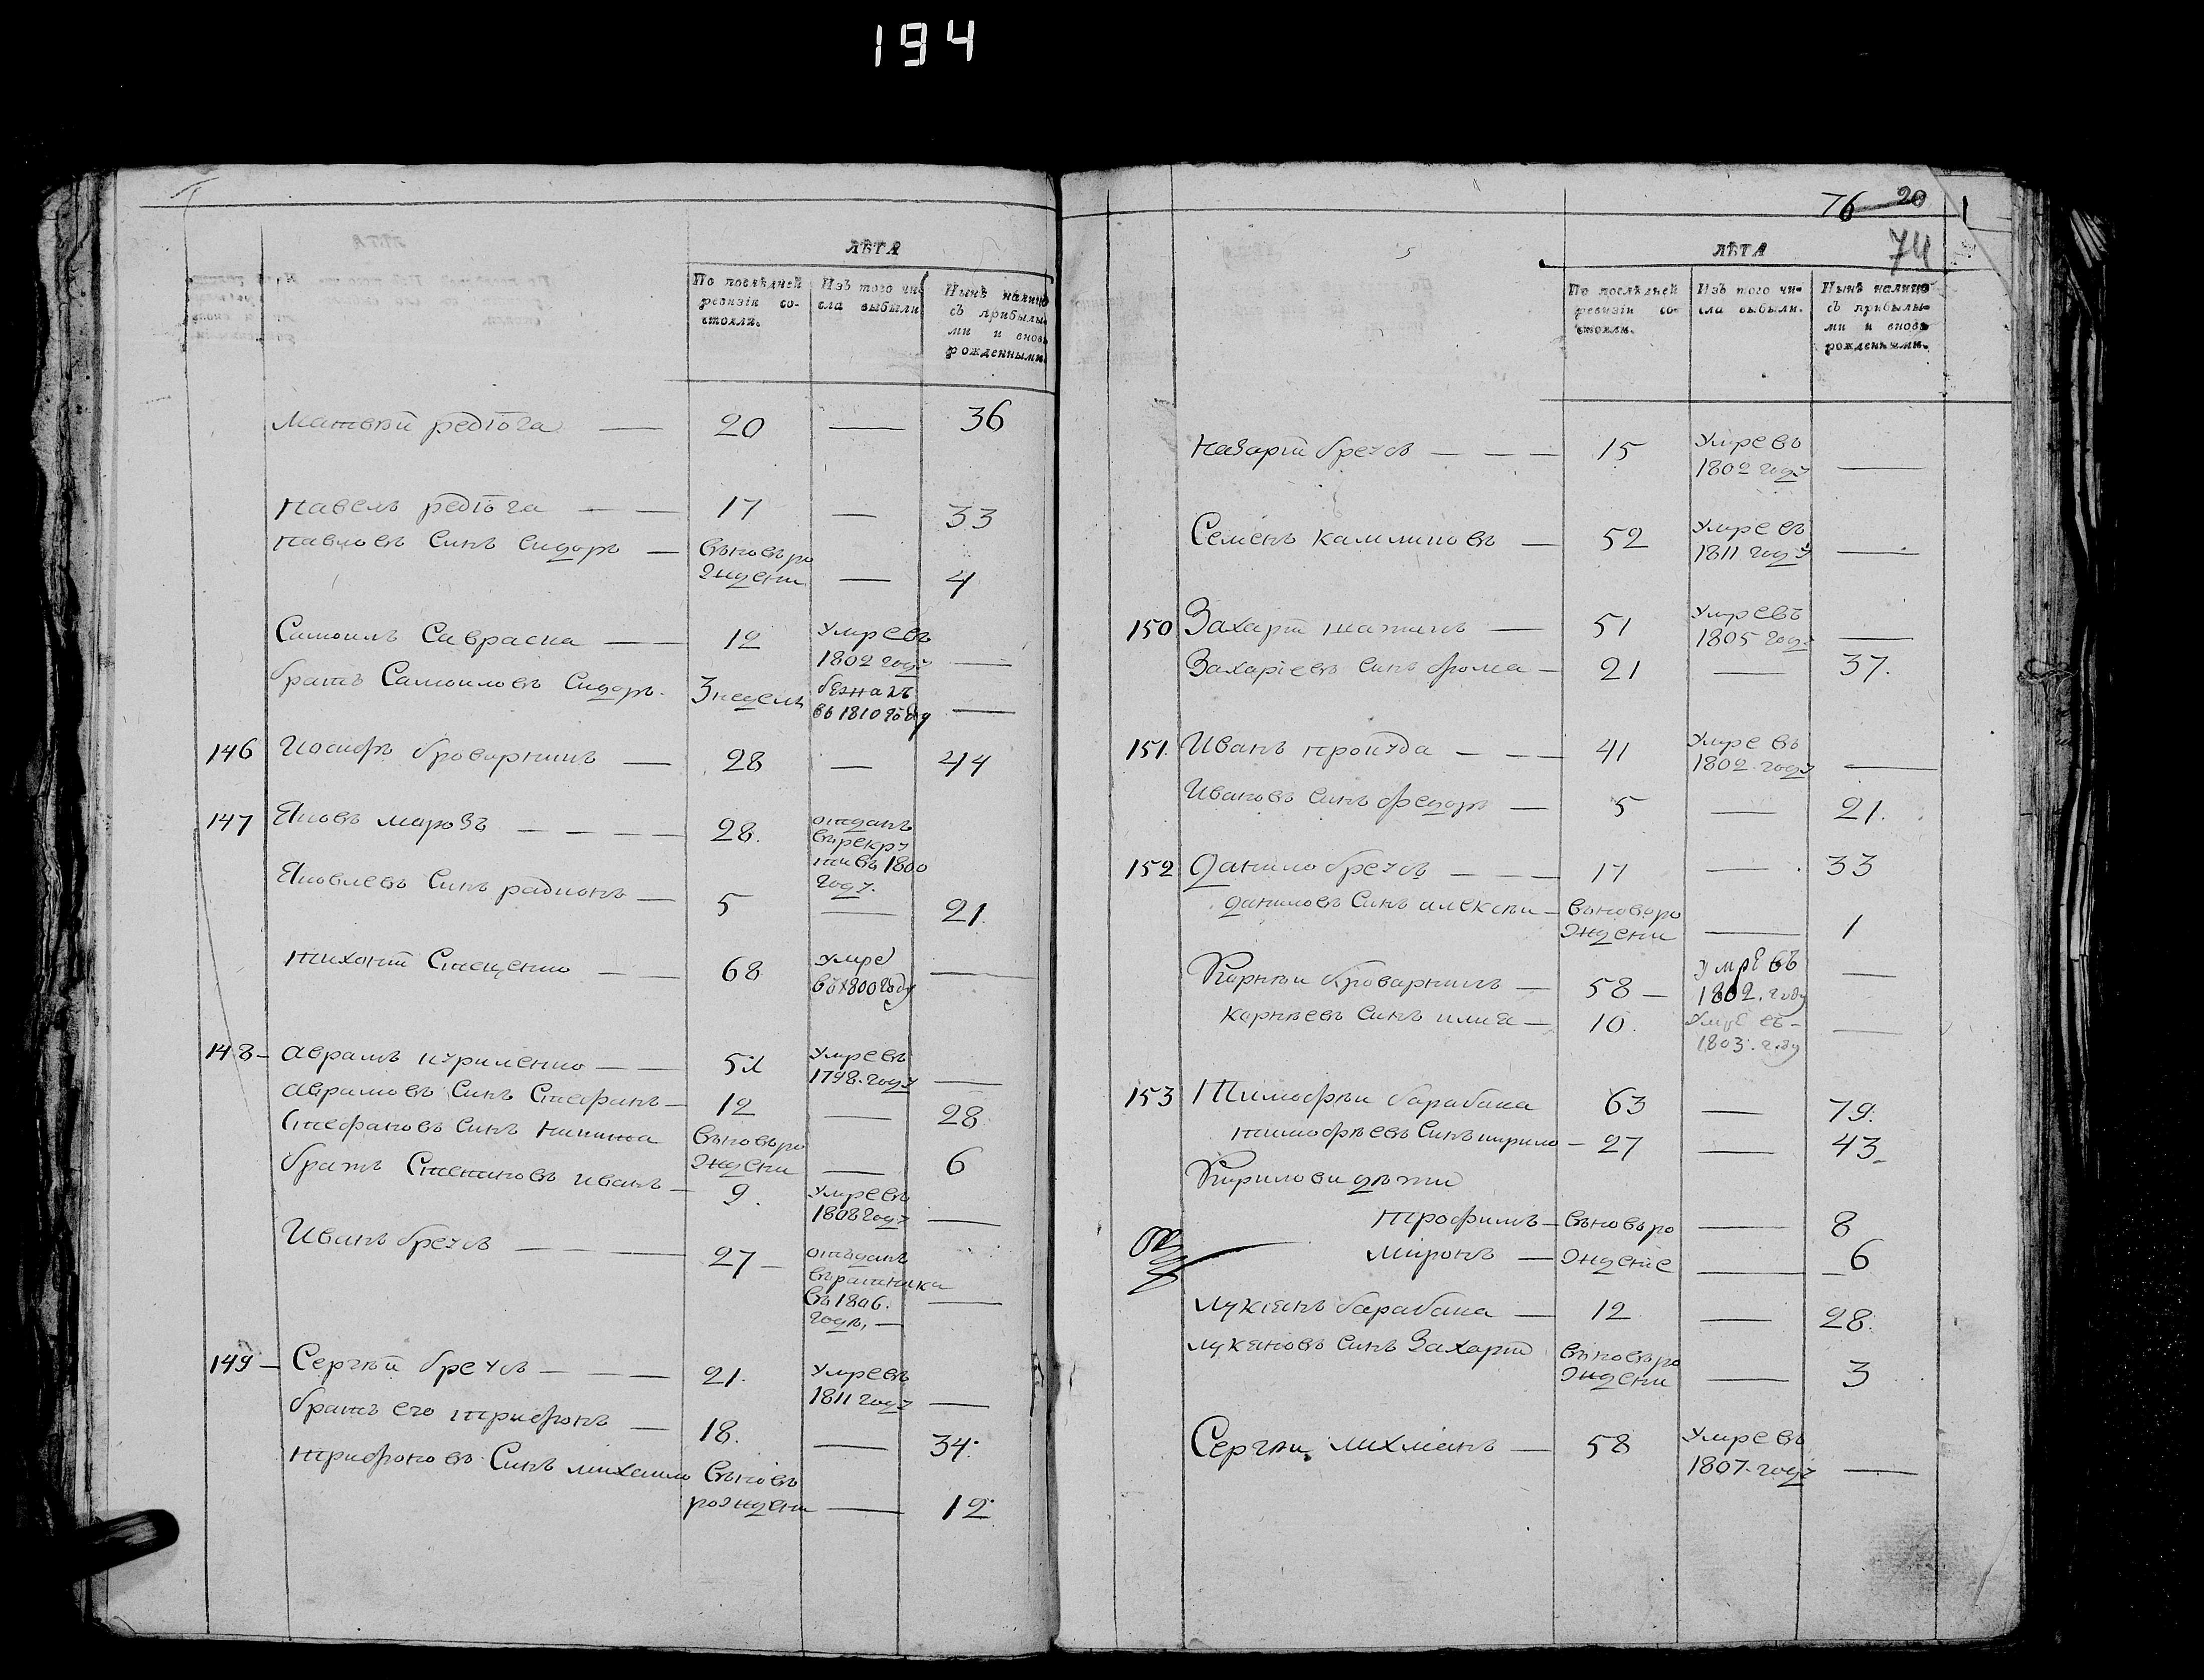 194
ЛѢТА
По послѣдней ревизіи со-стояли.
Изъ того чи-сла выбыли
Нынѣ налицо съ прибылы-ми и вновь рожденными
Матвѣй редюга — 20 — 36
Павелъ редюга — — 17 — 33
Павловъ Синъ Сидоръ — вьновъро
ждени — 4
Самоилъ Савраска — — 12 Умре въ
1802 году —
братъ Самоиловъ Сидоръ. 3 недель бежалъ
въ 1810 году —
146 Иосифъ броварникъ — 28 — 44
147 Яковъ марозъ — — — — 28. отданъ
въ рекру
ти въ 1800
году.
Яковлевъ Синъ радионъ — 5 — 21.
тихонъ Стеценко — — 68 Умре
въ 1800 году —
148 — аврамъ куриленко — — 52 Умре въ
1798. году —
аврамовъ Синъ Стефанъ — 12 — 28
Стефановъ Синъ никита вьновъро
ждени — 6
братъ Степановъ иванъ — 9. Умре въ
1808 году —
Иванъ бречъ — — — — 27 — отъданъ
въ ратники
въ 1806.
годъ, — —
149 — Сергѣй бречъ — — — 21. Умре въ
1811 году —
братъ его трифонъ — 18. — 34.
трифоновъ Синъ михаило вьновъ
рождени — 12
76 20
74
ЛѢТА
По послѣдней ревизіи со-стояли.
Изъ того чи-сла выбыли.
Нынѣ налицо съ прибылы-ми и вновь рожденными.
назарій бречъ — — — 15 Умре въ
1802 году —
Семенъ калиниковъ — 52 Умре въ
1811 году —
150 Захарій шатинъ — 51 Умре въ
1805 году —
Захаріевъ Синъ фома — 21 — 37.
151. Иванъ приуда — — — 41 Умре въ
1802. году —
Ивановъ Синъ федоръ — 5 — 21.
152 Данило бречъ — — — 17 — 33
даниловъ Синъ алексѣи — вьновъро
ждени — 1
Корнѣи броварникъ — 58 — Умре въ
1802. году —
корнѣевъ Синъ илия — 10. Умре въ —
1803. году —
153 Тимофѣи барабаха 63 — 79.
тимофѣевъ Синъ кирило — 27 — 43
Кирилови дѣти
трофимъ — вьновъро — 8
миронъ — ждение — 6
лукіянъ барабаха — 12 — 28.
лукяновъ Синъ Захарій вьновъро
ждени — 3
Сергѣи михманъ — 58 Умре въ
1807. году —